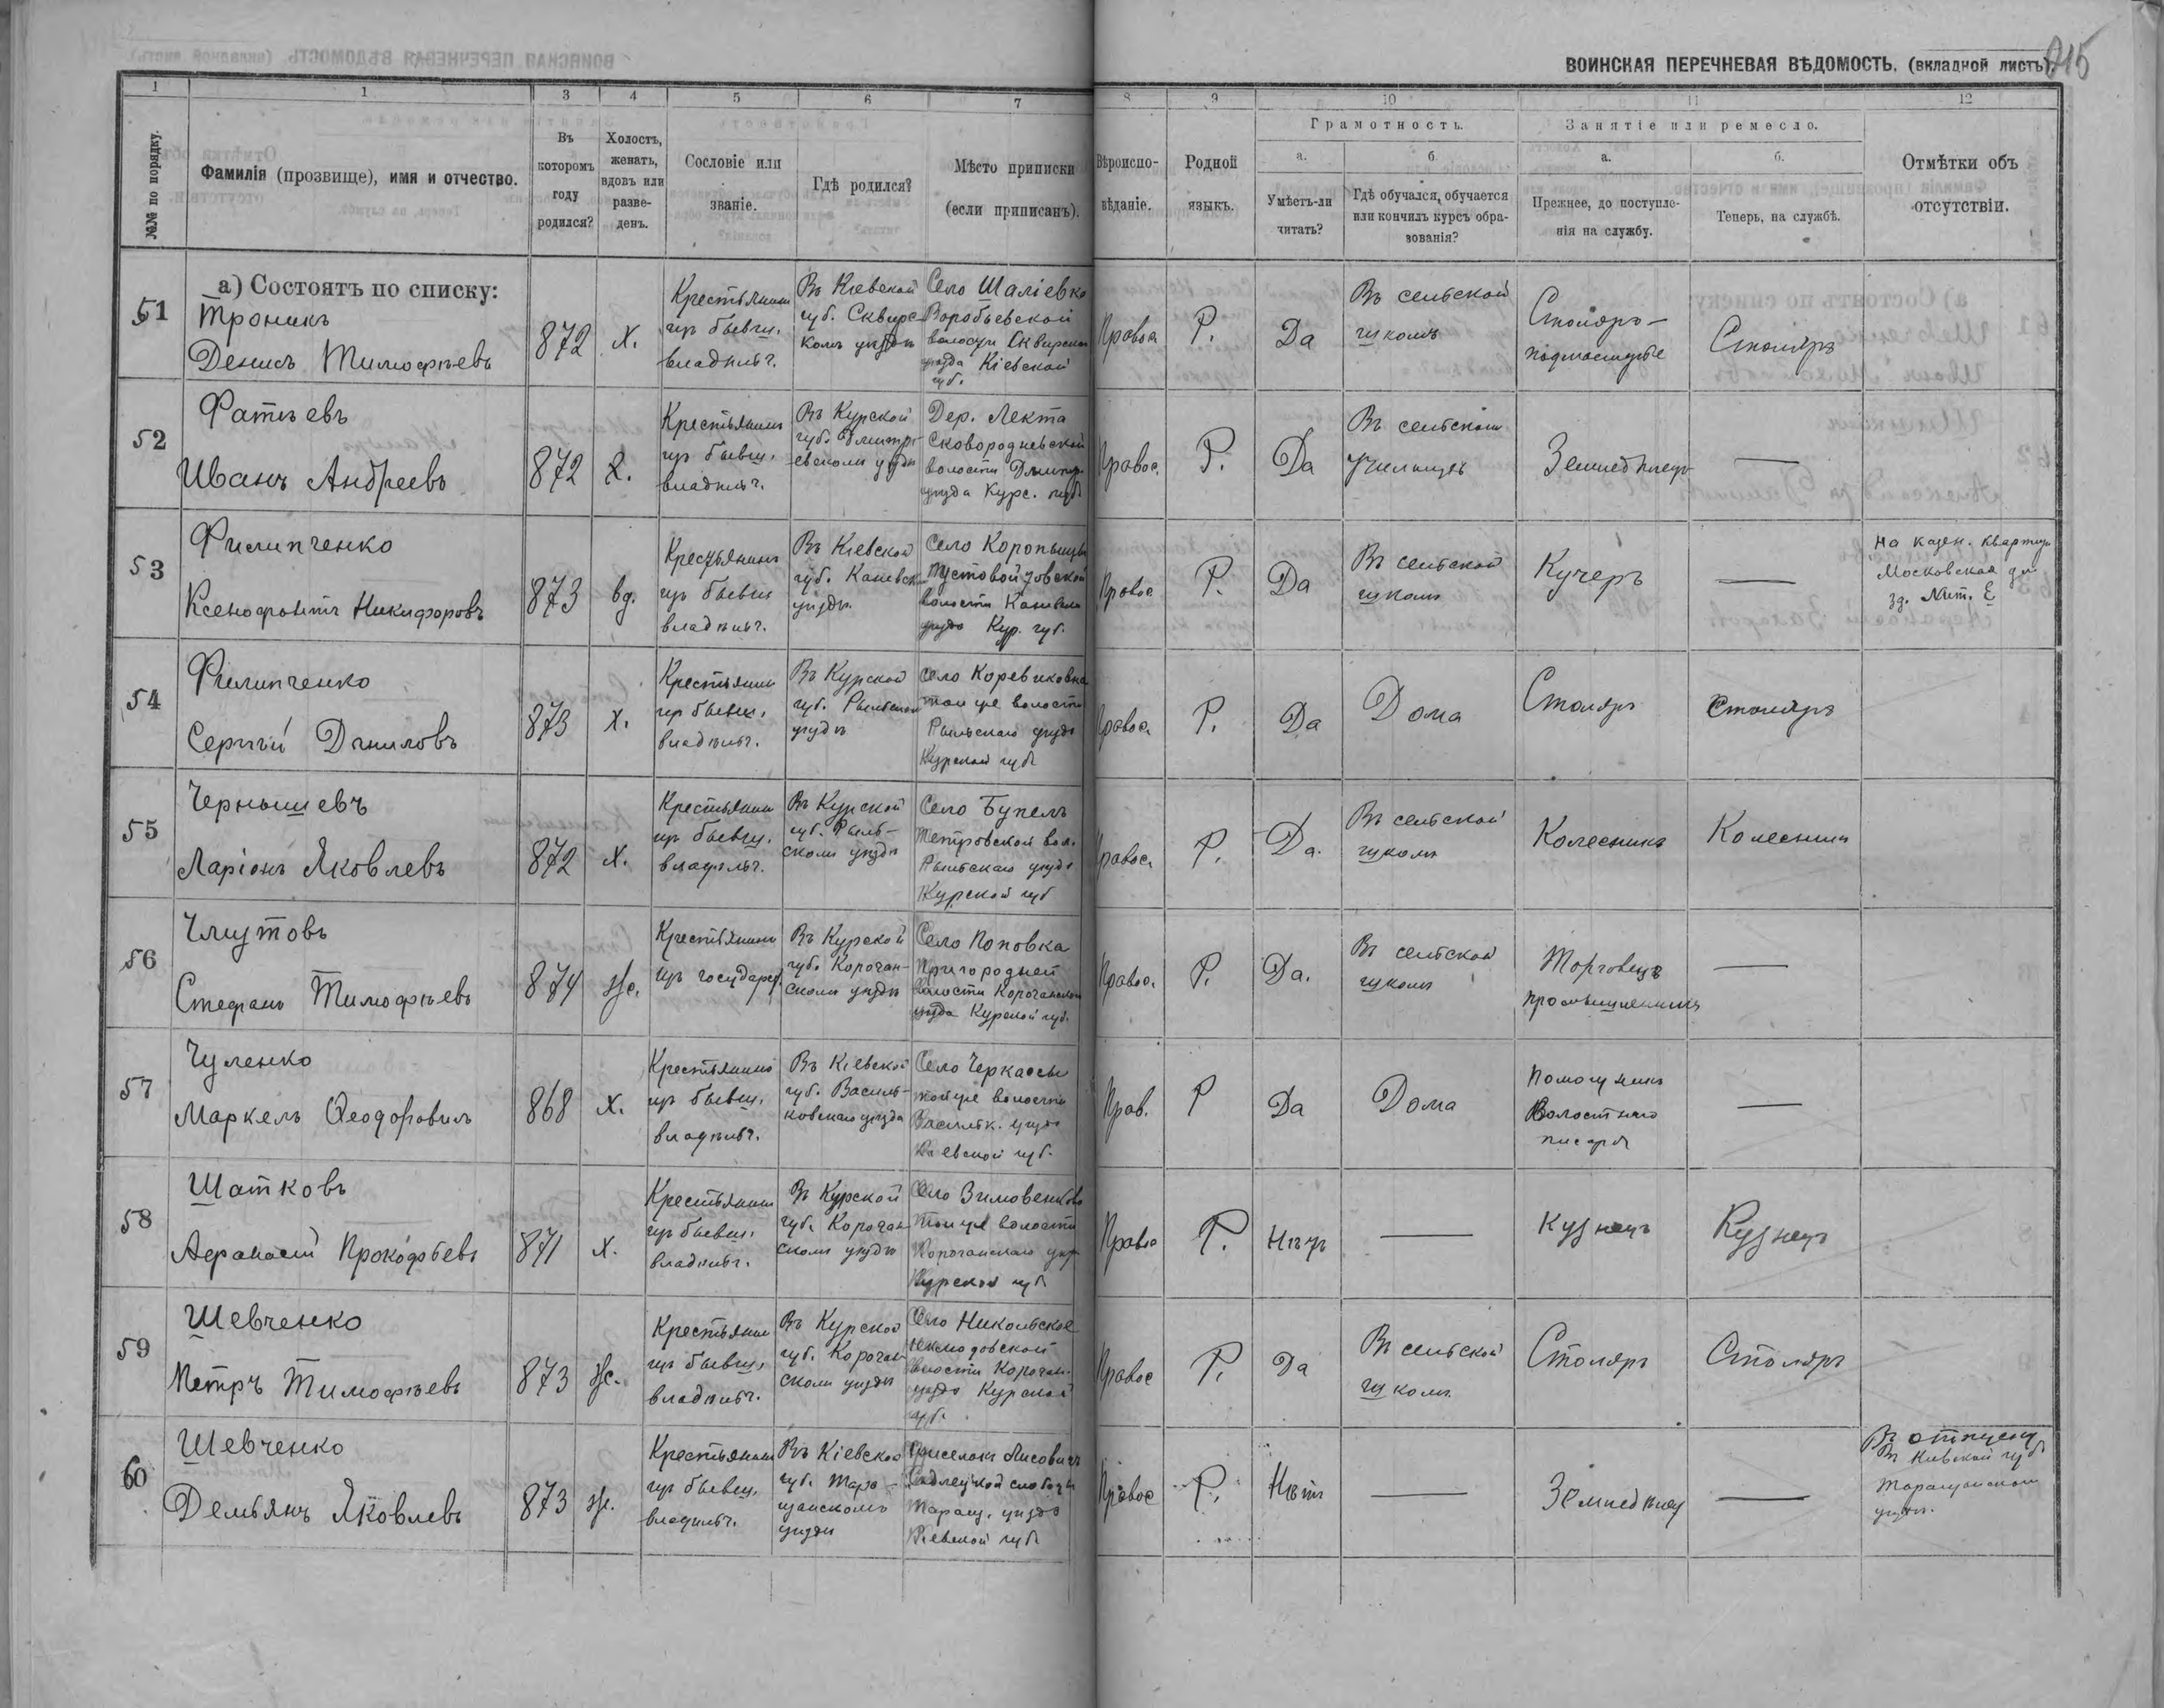 ВОИНСКАЯ ПЕРЕЧНЕВАЯ ВѢДОМОСТЬ. (вкладной листъ).
215
1 1 3 4 5 6 7 8 9 10 11 12
№№ по порядку.
Фамилія (прозвище), имя и отчество.
Въ которомъ году родился?
Холостъ, женатъ, вдовъ или разведенъ.
Сословіе или званіе.
Гдѣ родился?
Мѣсто приписки (если приписанъ).
Вѣроисповѣданіе.
Родной языкъ.
Грамотность.
а.
Умѣетъ-ли читать?
б.
Гдѣ обучался, обучается или кончилъ курсъ образованія?
Занятіе или ремесло.
а.
Прежнее, до поступленія на службу.
б.
Теперь, на службѣ.
Отмѣтки объ отсутствіи.
а) Состоятъ по списку:
51
Троникъ
Денисъ Тимофѣевъ
872
х.
Крестьянинъ
изъ бывш.
владѣльч.
Въ Кіевской
губ. Сквирс
комъ уѣздѣ
Село Шаліевка
Воробьевской
волости Сквирска
уѣзда Кіевской
губ.
Правос
Р.
Да
Въ сельской
школѣ
Столяръ-
подмастерье
Столяръ
52
Фатѣевъ
Иванъ Андреевъ
872
х.
Крестьянинъ
изъ бывш.
владѣльч.
Въ Курской
губ. Дмитр-
евскомъ уѣздѣ
Дер.
волости Дмитр.
уѣзда Курс. губ
Правос.
Р.
Да
Въ сельскомъ
училищѣ
Земледѣлецъ
—
53
Филипченко
Ксенофонтъ Никифоровъ
873
вд.
Крестьянинъ
изъ бывш
владѣльч.
Въ Кіевской
губ. Каневск
уѣздѣ.
Село
волости Каневска
уѣзда Кур. губ.
Правос
Р.
Да
Въ сельской
школѣ
Кучеръ
—
На казен. квартирѣ
Московская
зд. Лит. Е
54
Филипченко
Сергѣй Даниловъ
873
х.
Крестьянинъ
изъ бывш.
владѣльч.
Въ Курской
губ. Рыльском
уѣздѣ
Село
той же волости
Рыльскаго уѣзда
Курской губ
Правос.
Р.
Да
Дома
Столяръ
Столяръ
55
Чернышевъ
Ларіонъ Яковлевъ
872
х.
Крестьянинъ
изъ бывш.
владѣльч.
Въ Курской
губ. Рыль-
скомъ уѣздѣ
Село Бупелъ
Петровской вол.
Рыльскаго уѣзда
Курской губ
Правос.
Р.
Да.
Въ сельской
школѣ
Колесникъ
Колесникъ
56
Чмутовъ
Стефанъ Тимофѣевъ
874
ж.
Крестьянинъ
изъ государ.
Въ Курской
губ. Корочан-
скомъ уѣздѣ
Село Поповка
Пригородней
волости Корочанскаго
уѣзда Курской губ.
Правос.
Р.
Да.
Въ сельской
школѣ
Торговецъ
промышленникъ
—
57
Чуленко
Маркелъ Ѳеодоровичъ
868
х.
Крестьянинъ
изъ бывш.
владѣльч.
Въ Кіевской
губ. Василь-
ковскаго уѣзда
Село Черкассы
той же волости
Васильк. уѣзда
Кіевской губ.
Прав.
Р
Да
Дома
Помощникъ
Волостнаго
писаря
—
58
Шатковъ
Афанасій Прокофьевъ
871
х.
Крестьянинъ
изъ бывш.
владѣльч.
Въ Курской
губ. Корочан
скомъ уѣздѣ
Село Зимовеньково
той же волости
Корочанскаго уѣз
Курской губ
Правос
Р.
Нѣтъ
—
Кузнецъ
Кузнецъ
59
Шевченко
Петръ Тимофѣевъ
873
ж.
Крестьянин
изъ бывш.
владѣльч.
Въ Курской
губ. Корочан-
скомъ уѣздѣ
Село Никольское
волости Корочан.
уѣзда Курской
губ.
Правос
Р.
Да
Въ сельской
школѣ.
Столяръ
Столяръ
60
Шевченко
Демьянъ Яковлевъ
873
ж.
Крестьянинъ
изъ бывш.
владѣльч.
Въ Кіевской
губ. Тара-
щанскомъ
уѣздѣ
слободы
Таращ. уѣзда
Кіевской губ
Правос
Р.
Нѣтъ
—
Земледѣлец
—
Въ отпуску
Въ Кіевской губ
Таращанском
уѣздѣ.